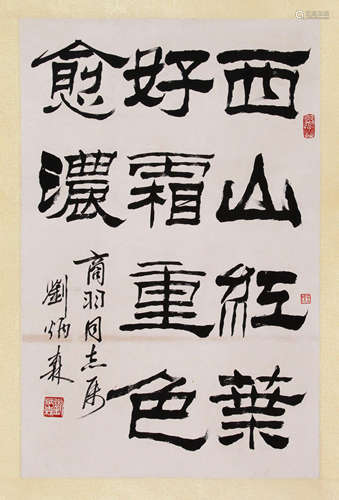 西山红葉
好霜重色
愈濃
商羽同志属
劉炳森